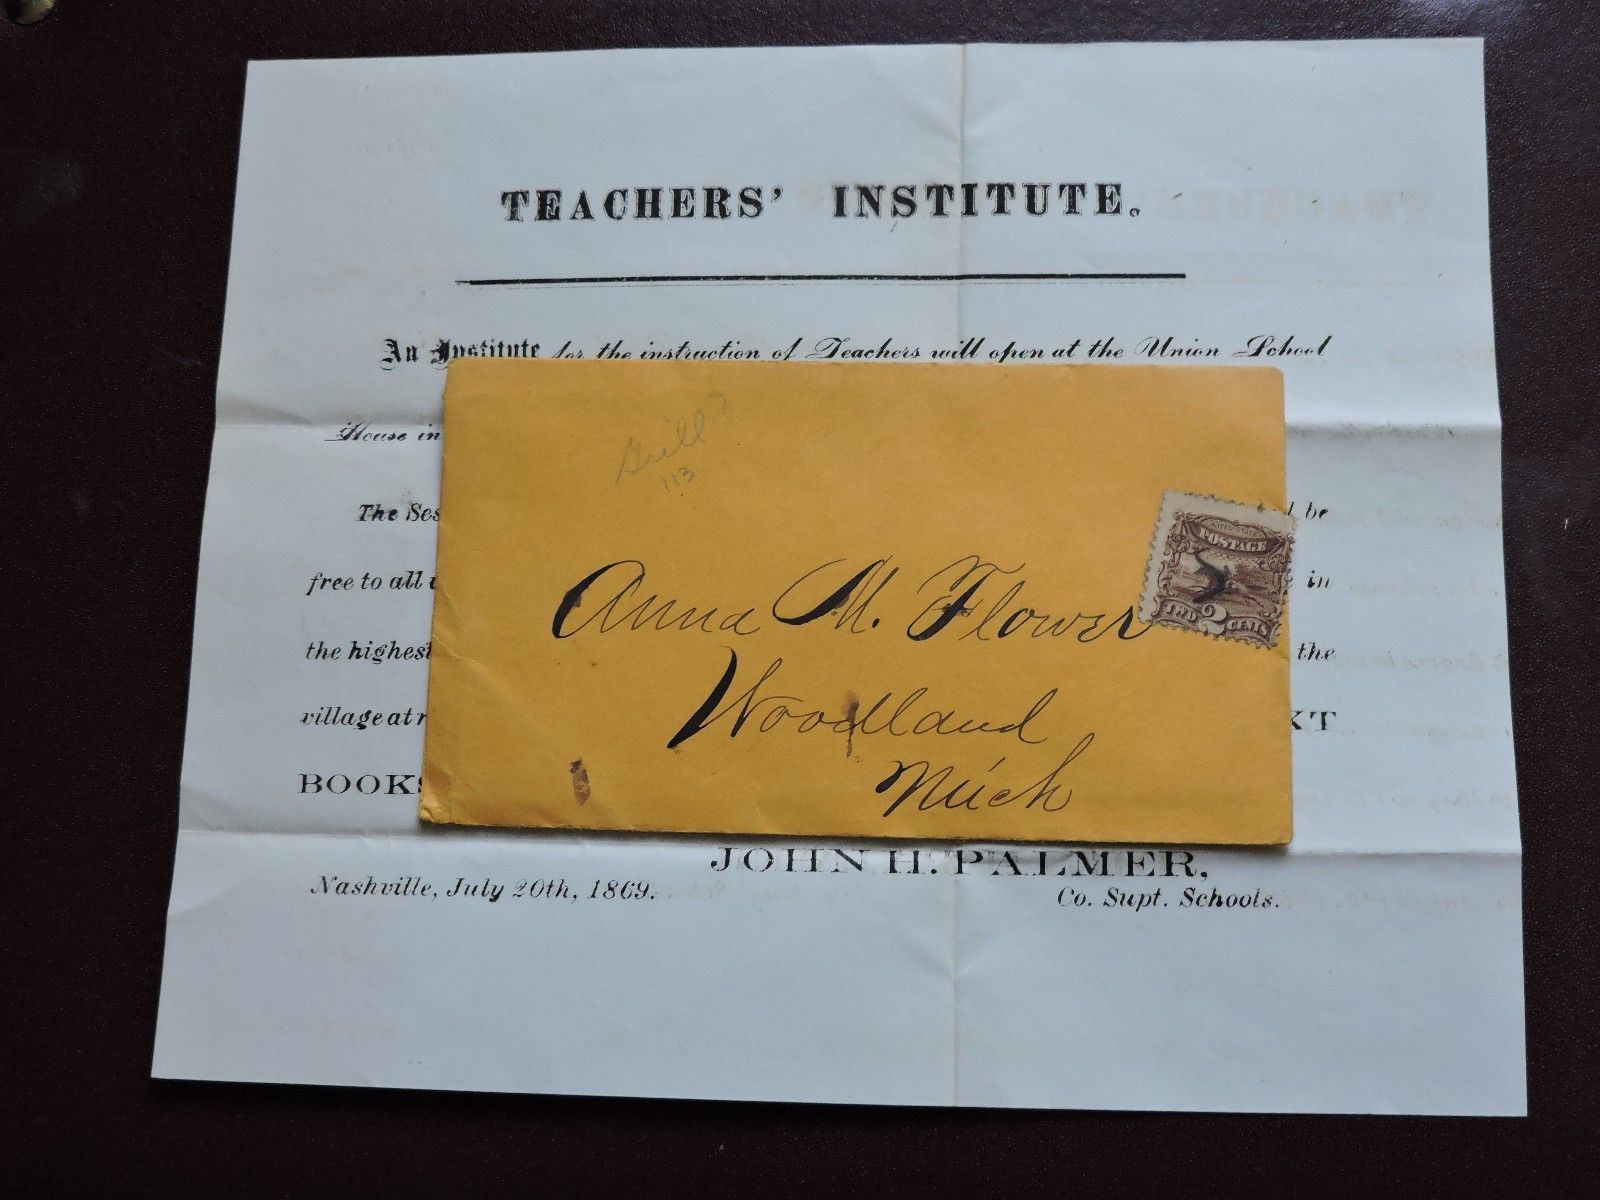 TEACHERS' INSTITUTE.
An Institute for the instruction of Teachers will open at the Union School
House in
The Ses
l be
free to all
in
the highest
the
village at
XT
BOOKS
JOHN H. PALMER,
Nashville, July 20th, 1869.
Co. Supt. Schools.
Grill?
113
POSTAGE
TWO 2 CENTS
Anna M. Flower
Woodland
Mich